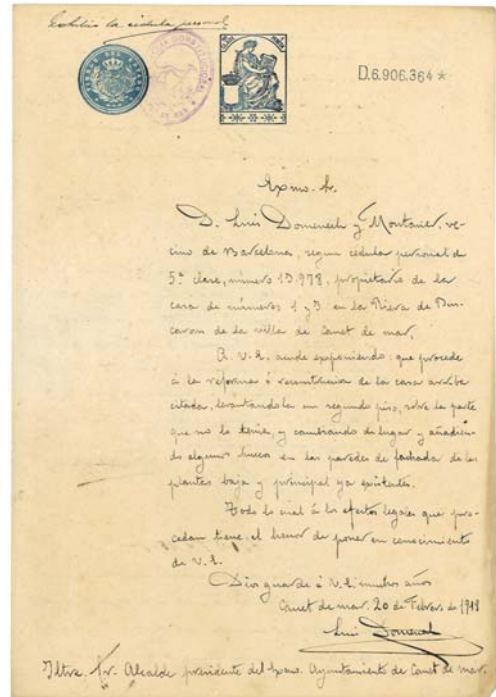 Exhibió la cédula personal
TIMBRE DEL ESTADO
D.6.906.364 *
Exmo. Sr.
D. Luis Domenech y Montaner, ve-
cino de Barcelona, segun cédula personal de
5ª clase, número 13.978, propietario de la
casa de números 1 y 3 en la Riera de Bus-
carons de la villa de Canet de mar,
A. V. E. acude exponiendo: que procede
á la reforma ó reconstrucion de la casa arriba
citada, levantandola un segundo piso, sobre la parte
que no lo tenia, y cambiando de lugar y añadien-
do algunos huecos en las paredes de fachada de las
plantas baja y principal ya existentes.
Todo lo cual á los efectos legales que pro-
cedan tiene el honor de poner en conocimiento
de V. E.
Dios guarde á V. E. muchos años
Canet de mar, 20 de Febrero de 1918
Luis Domenech
Iltre. Sr. Alcalde presidente del Exmo. Ayuntamiento de Canet de mar.